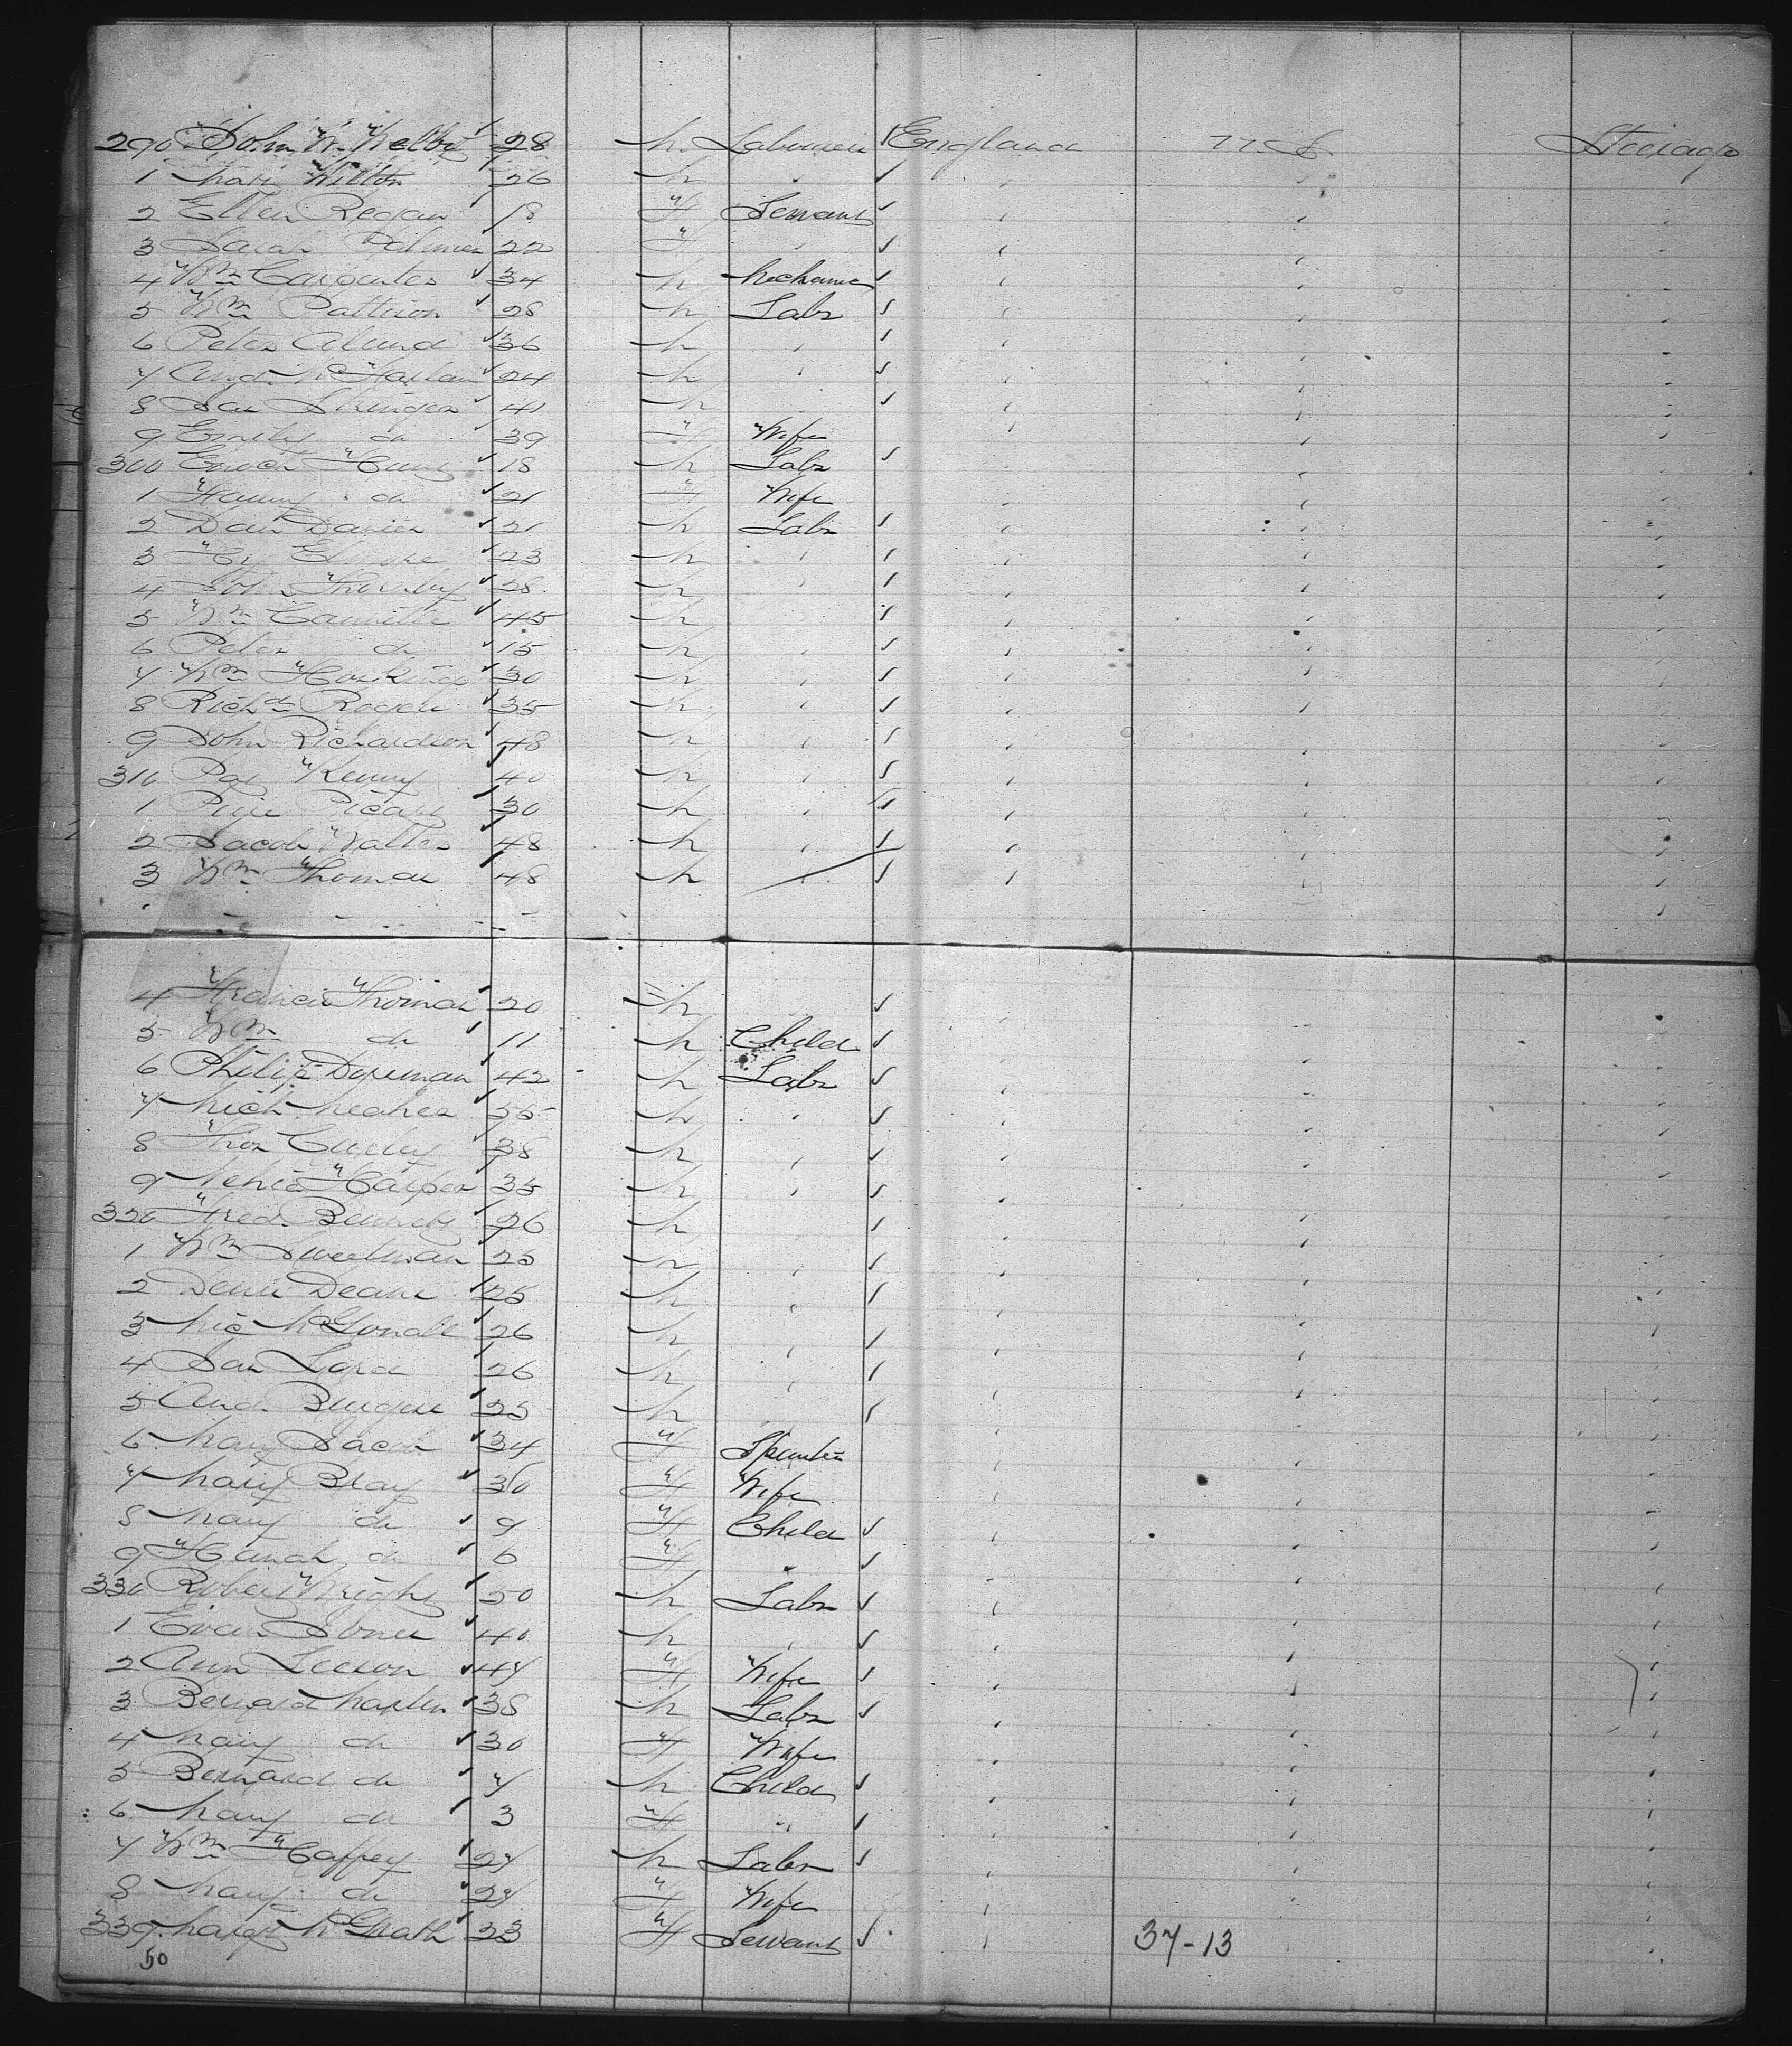 290 John W. Welby 28 M Labourer England U.S. Steerage
1 Mary Wilton 26 M "
2 Ellen Regan 18 F Servant
3 Sarah Palmer 22 F "
4 Wm Carpenter 34 M Mechanic
5 Wm Pattison 28 M Labr
6 Peter 36 M "
7 Angs McFarlan 24 M "
8 Sam Stringer 41 M
9 Emily do 39 F Wife
300 Enoch Hunt 18 M Labr
1 Fanny do 21 F Wife
2 Dan Davies 21 M Labr
3 Hy 23 M "
4 John Thornby 28 M "
5 Wm 45 M "
6 Peter do 15 M "
7 Wm Hosking 30 M "
8 Richd 35 M "
9 John Richardson 48 M "
310 Pat Kenny 40 M "
1 30 M "
2 Jacob Walter 48 M "
3 Wm Thomas 48 M "
4 Francis Thomas 20 M
5 Wm do 11 M Child
6 Philip 42 M Labr
7 Mich Meaher 55 M "
8 Thos Curley 38 M "
9 Harper 35 M "
320 Fred Bennett 26 M
1 Wm Sweetman 25 M "
2 Denis Deane 25 M "
3 Mic 26 M "
4 Sam 26 M "
5 And. Burgess 25 M
6 Mary Jacob 34 F Spinster
7 Mary Bray 30 F Wife
8 Mary do 9 F Child
9 Hanah do 6 F "
330 Robert Wright 50 M Labr
1 Evan Jones 40 M "
2 Ann Leeson 47 F Wife
3 Bernard Martin 38 M Labr
4 Mary do 30 F Wife
5 Bernard do 7 M Child
6 Mary do 3 F "
7 Wm Caffrey 27 M Labr
8 Mary do 27 F Wife
339 Margt McGrath 23 F Servant 37-13
50